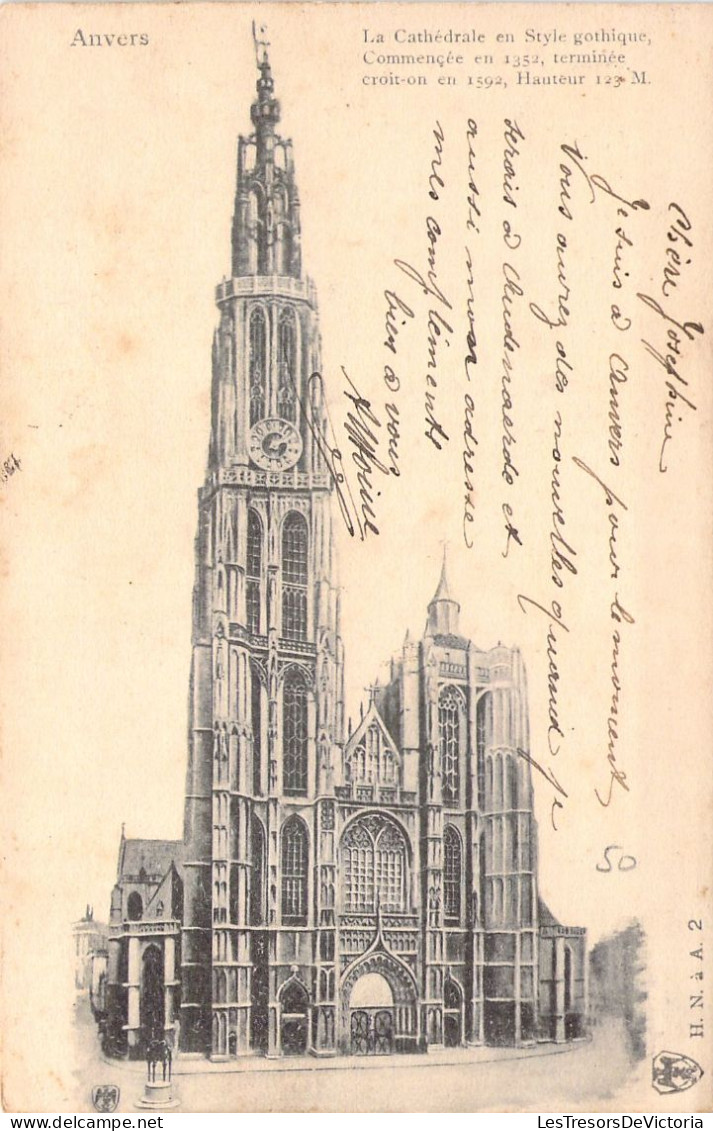 Anvers
La Cathédrale en Style gothique,
Commençée en 1352, terminée
croit-on en 1592, Hauteur 123 M.
Chère Joséphine
Je suis à Anvers pour le moment
Vous aurez des nouvelles quand je
serais à Audenaerde et
aussi mon adresse
mes compliments
bien à vous
50
H. N. à A. 2
LesTresorsDeVictoria @ Delcampe.net